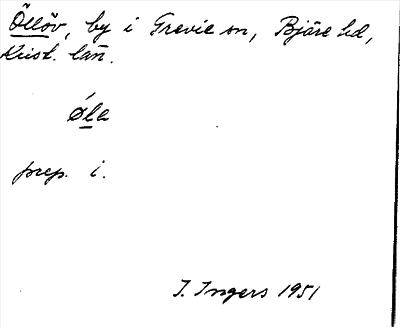 Öllöv, by i Grevie sn, Bjäre hd,
Krist. län.
ǿlə
prep. i.
I. Ingers 1951